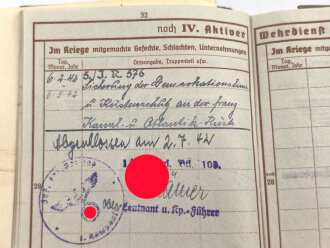 32
noch IV. Aktiver
Wehrdienst
Im Kriege mitgemachte Gefechte, Schlachten, Unternehmungen
Im Kriege
Tag, Monat, Jahr
Ortsangabe, Truppenteil usw.
Tag, Monat, Jahr
6.2.42 5./J.R. 576
Sicherung der Demarkationslinie
u. Küstenschutz an der franz.
Kanal- u. Atlantik-Küste
Abgeschlossen am 2.7.42
28
28
Leutnant u. Kp.-Führer